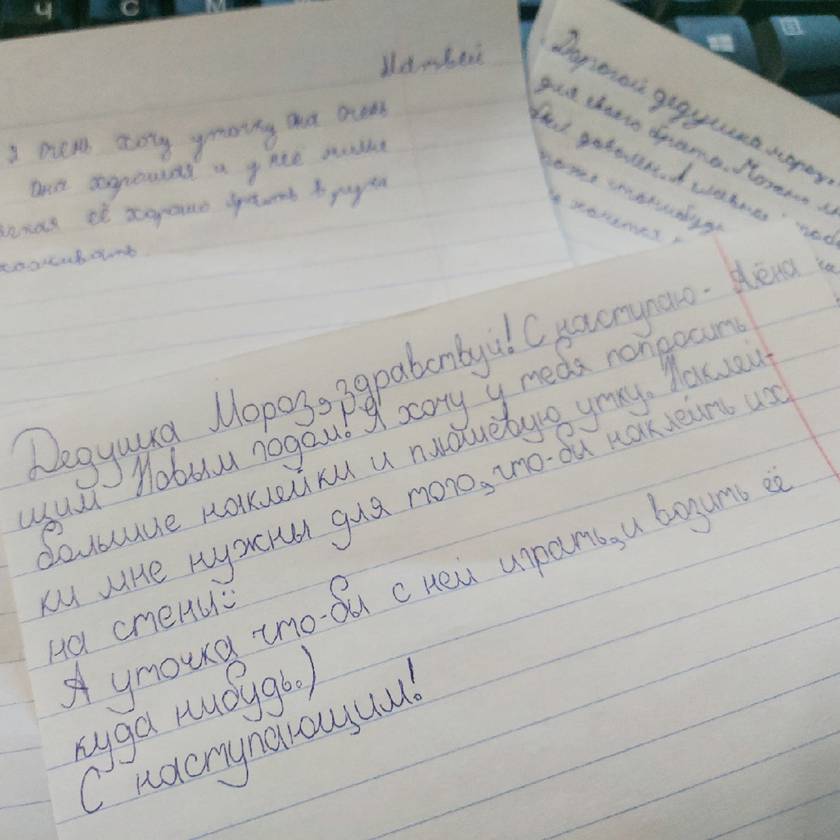 Матвей
я очень хочу уточку она очень
она хорошая и у неё милые
её хорошо брать в руки
Дорогой дедушка мороз
для своего брата. Можно
был доволен. А главное
хочется
Алёна
Дедушка Мороз, здравствуй! С наступаю-
щим Новым годом! Я хочу у тебя попросить
большие наклейки и плюшевую утку. Наклей-
ки мне нужны для того, что-би наклеить их
на стены:
А уточка что-би с ней играть, и возить её
куда нибудь.)
С наступающим!